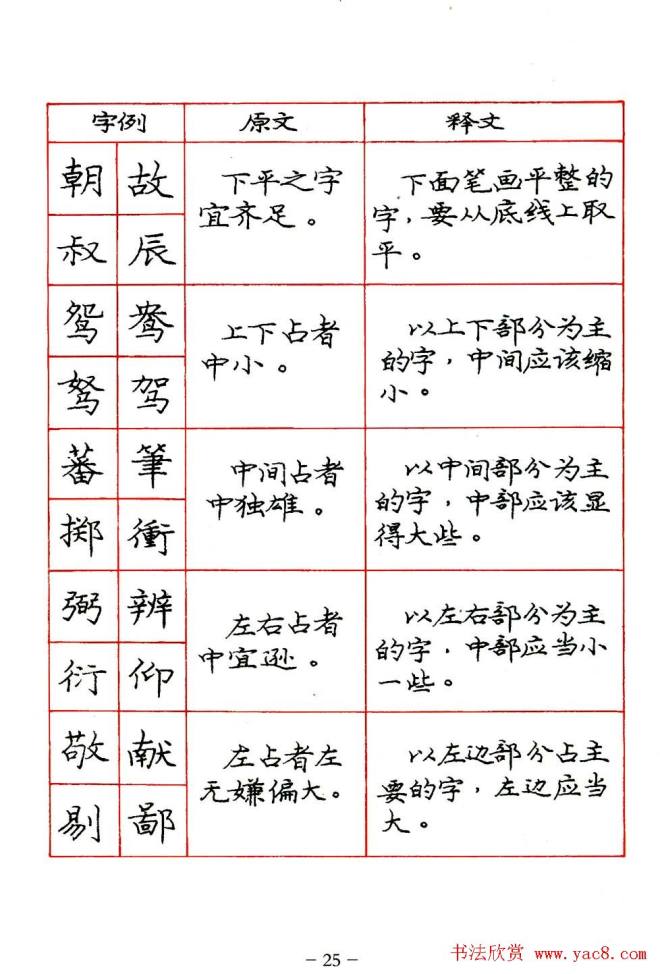 字例 原文 释文
朝 故
叔 辰
下平之字
宜齐足。
下面笔画平整的
字，要从底线上取
平。
鸳 鸯
驽 驾
上下占者
中小。
以上下部分为主
的字，中间应该缩
小。
蕃 筆
掷 衝
中间占者
中独雄。
以中间部分为主
的字，中部应该显
得大些。
弼 辨
衍 仰
左右占者
中宜逊。
以左右部分为主
的字，中部应当小
一些。
敬 献
剔 鄙
左占者左
无嫌偏大。
以左边部分占主
要的字，左边应当
大。
- 25 -
书法欣赏 www.yac8.com